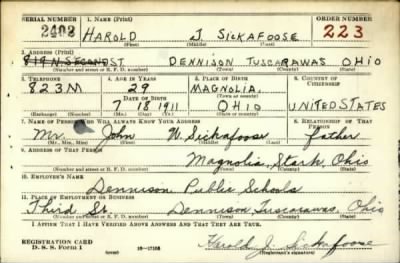 SERIAL NUMBER 1. NAME (Print) ORDER NUMBER
2402 HAROLD J SICKAFOOSE 223
(First) (Middle) (Last)
2. ADDRESS (Print)
819 N. SECOND ST DENNISON TUSCARAWAS OHIO
(Number and street or R. F. D. number) (Town) (County) (State)
3. TELEPHONE 4. AGE IN YEARS 5. PLACE OF BIRTH 6. COUNTRY OF CITIZENSHIP
823M 29 MAGNOLIA
DATE OF BIRTH (Town or county)
7 18 1911 OHIO UNITED STATES
(Exchange) (Number) (Mo.) (Day) (Yr.) (State or country)
7. NAME OF PERSON WHO WILL ALWAYS KNOW YOUR ADDRESS 8. RELATIONSHIP OF THAT PERSON
Mr. John W. Sickafoose father
(Mr., Mrs., Miss) (First) (Middle) (Last)
9. ADDRESS OF THAT PERSON
Magnolia, Stark, Ohio
(Number and street or R. F. D. number) (Town) (County) (State)
10. EMPLOYER'S NAME
Dennison Public Schools
11. PLACE OF EMPLOYMENT OR BUSINESS
Third St. Dennison, Tuscarawas, Ohio
(Number and street or R. F. D. number) (Town) (County) (State)
I AFFIRM THAT I HAVE VERIFIED ABOVE ANSWERS AND THAT THEY ARE TRUE.
REGISTRATION CARD
D. S. S. FORM 1 (over) Harold J. Sickafoose
(Registrant's signature)